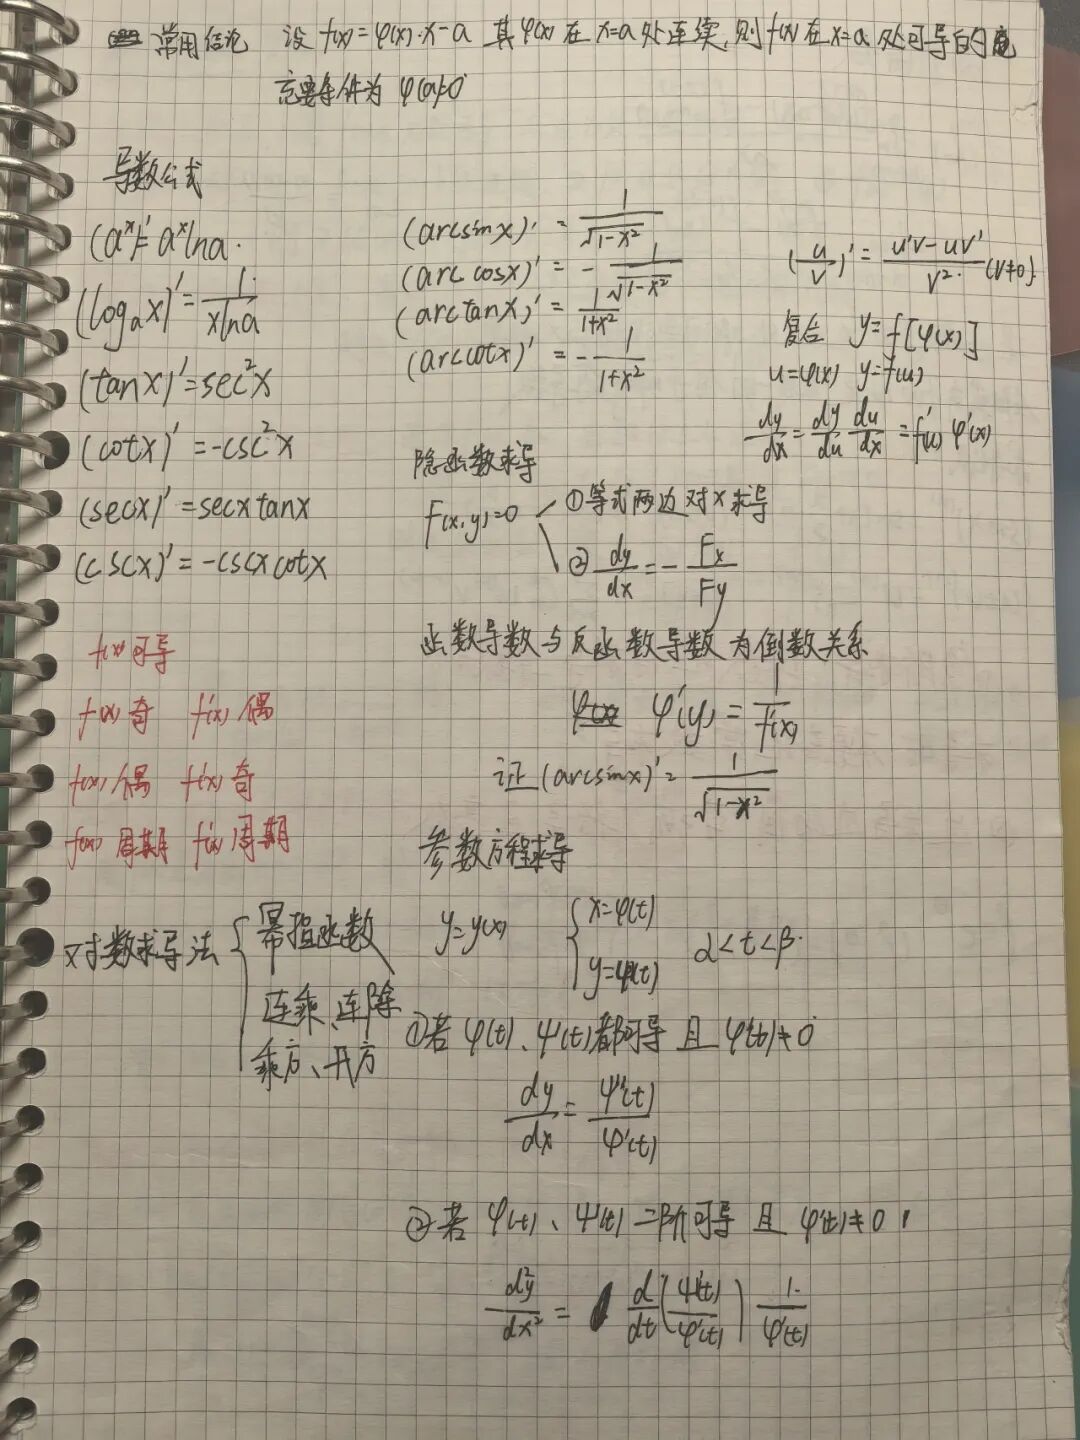 常用结论 设 f(x)=φ(x)·x-a 其φ(x)在x=a处连续,则f(x)在x=a处可导的
充要条件为 φ(a)=0
导数公式
(aˣ)'=aˣlna.
(logₐx)'=1/xlna
(tanx)'=sec²x
(cotx)'=-csc²x
(secx)'=secxtanx
(cscx)'=-cscxcotx
(arcsinx)'=1/√1-x²
(arccosx)'=-1/√1-x²
(arctanx)'=1/1+x²
(arccotx)'=-1/1+x²
(u/v)'=u'v-uv'/v² (v≠0)
复合 y=f[φ(x)]
u=φ(x) y=f(u)
dy/dx=dy/du du/dx=f'(u)φ'(x)
隐函数求导
F(x,y)=0
①等式两边对x求导
②dy/dx=-Fx/Fy
函数导数与反函数导数为倒数关系
φ'(y)=1/f'(x)
证(arcsinx)'=1/√1-x²
f(x)可导
f(x)奇 f'(x)偶
f(x)偶 f'(x)奇
f(x)周期 f'(x)周期
对数求导法
幂指函数
连乘、连除
乘方、开方
参数方程求导
y=y(x) {x=φ(t) α<t<β.
y=ψ(t)
①若φ(t)、ψ(t)都可导 且φ'(t)≠0
dy/dx=ψ'(t)/φ'(t)
②若φ(t)、ψ(t)二阶可导 且 φ'(t)≠0
d²y/dx²=d/dt(ψ'(t)/φ'(t))1/φ'(t)